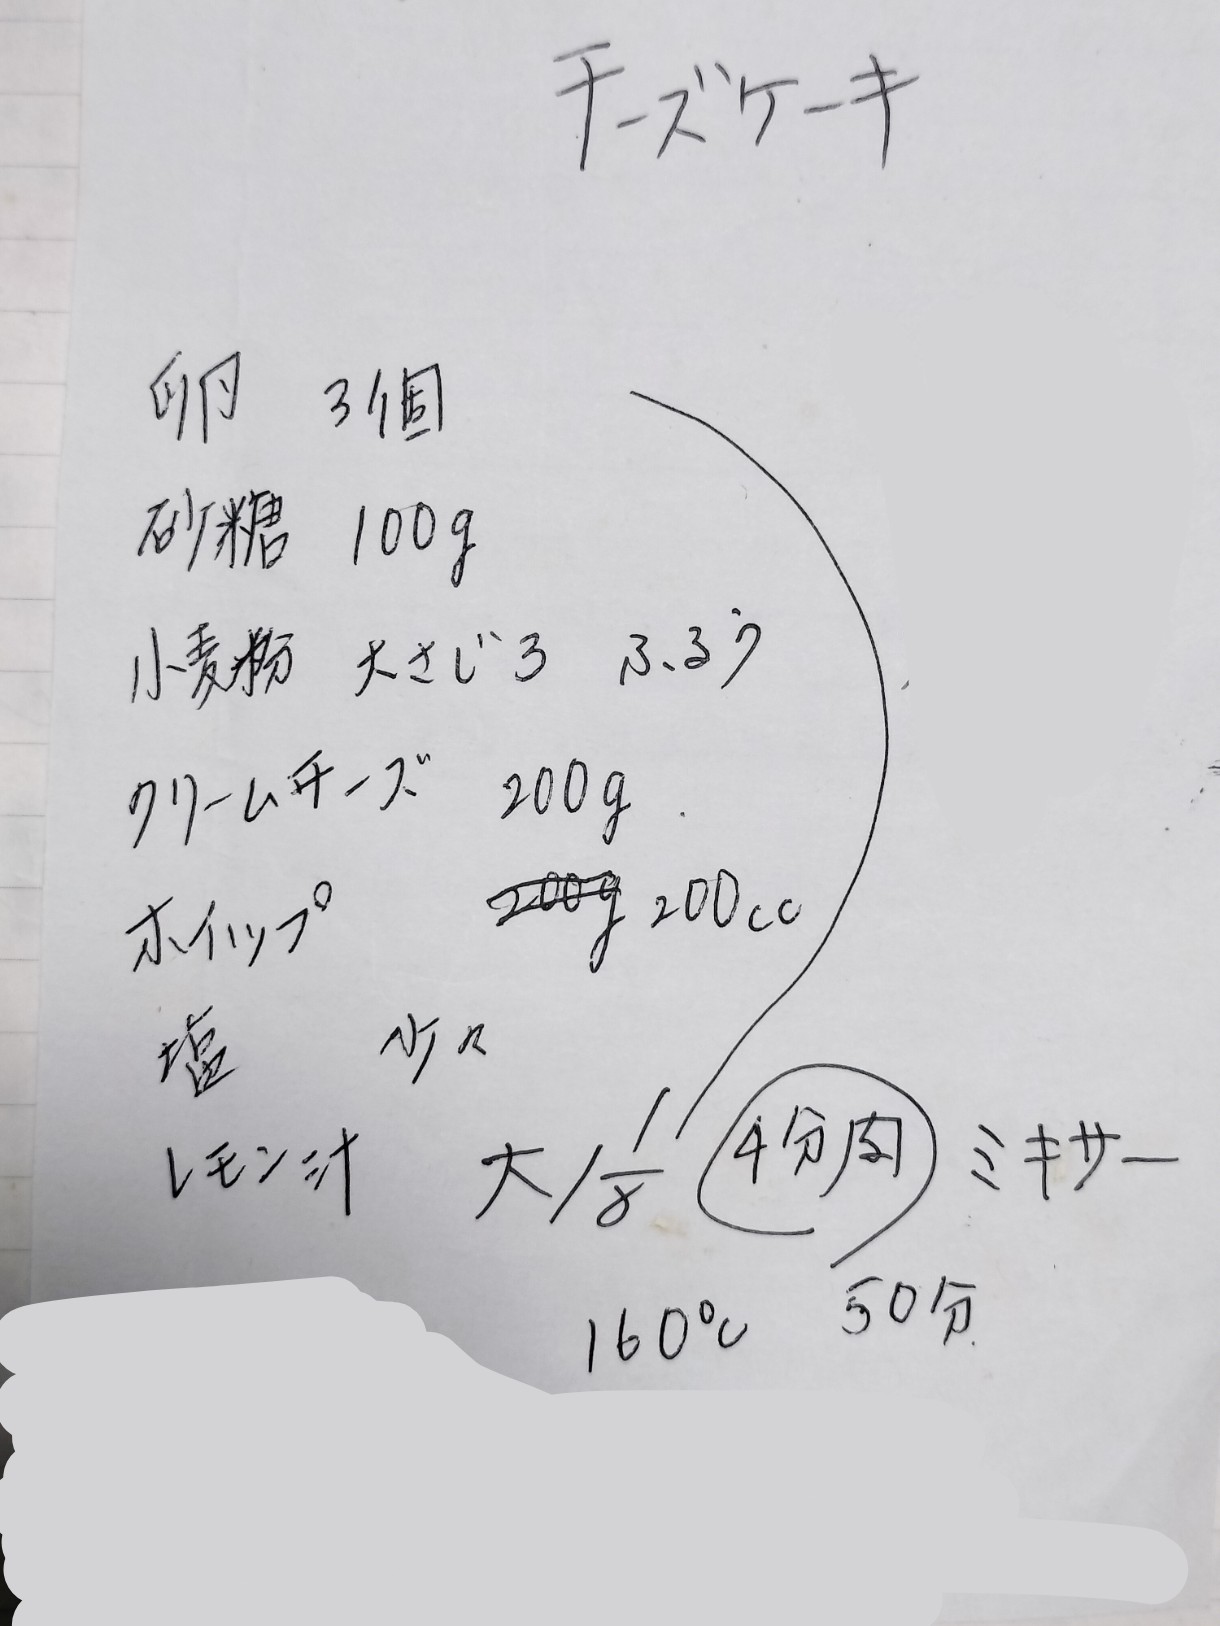 チーズケーキ
卵 3個
砂糖 100g
小麦粉 大さじ3 ふるう
クリームチーズ 200g
ホイップ 200g 200cc
塩 少々
レモン汁 大1 1/8 4分内 ミキサー
160℃ 50分